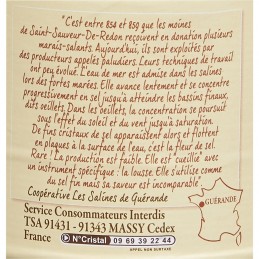 "C'est entre 854 et 859 que les moines
de Saint-Sauveur-De-Redon reçoivent en donation plusieurs
marais-salants. Aujourd'hui, ils sont exploités par
des producteurs appelés paludiers. Leurs techniques de travail
ont peu évolué. L'eau de mer est admise dans les salines
lors des fortes marées. Elle avance ensuite et se concentre
progressivement en sel jusqu'à atteindre les bassins finaux,
dits œillets. Dans les œillets, la concentration se poursuit
sous le soleil du soleil et du vent jusqu'à saturation.
De fins cristaux de sel apparaissent alors et flottent
en plaques à la surface de l'eau, c'est la fleur de sel.
Rare ! La production est faible. Elle est cueillie avec
un instrument spécifique : la lousse. Elle s'utilise comme
du sel fin mais sa saveur est incomparable".
Coopérative Les Salines de Guérande
GUÉRANDE
Service Consommateurs Interdis
TSA 91431 - 91343 MASSY Cedex
France N°Cristal 09 69 39 22 44
APPEL NON SURTAXÉ